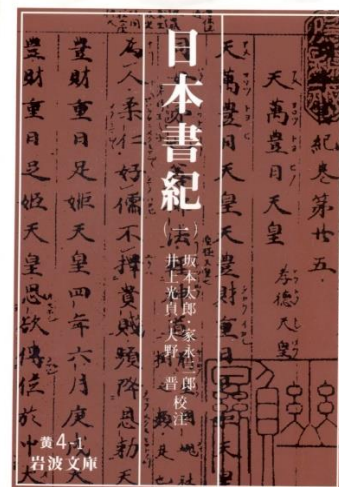 日本書紀
(一)
坂本太郎・家永三郎
井上光貞・大野 晋 校注
黄4-1
岩波文庫
紀卷第廿五
天萬豊日天皇 孝德天皇
天萬豊日天皇天豊財重日
為人柔仁好儒不擇貴賤頻降恩勅天
豊財重日足姫天皇四年六月庚
豊財重日足姫天皇思欲傳位於中